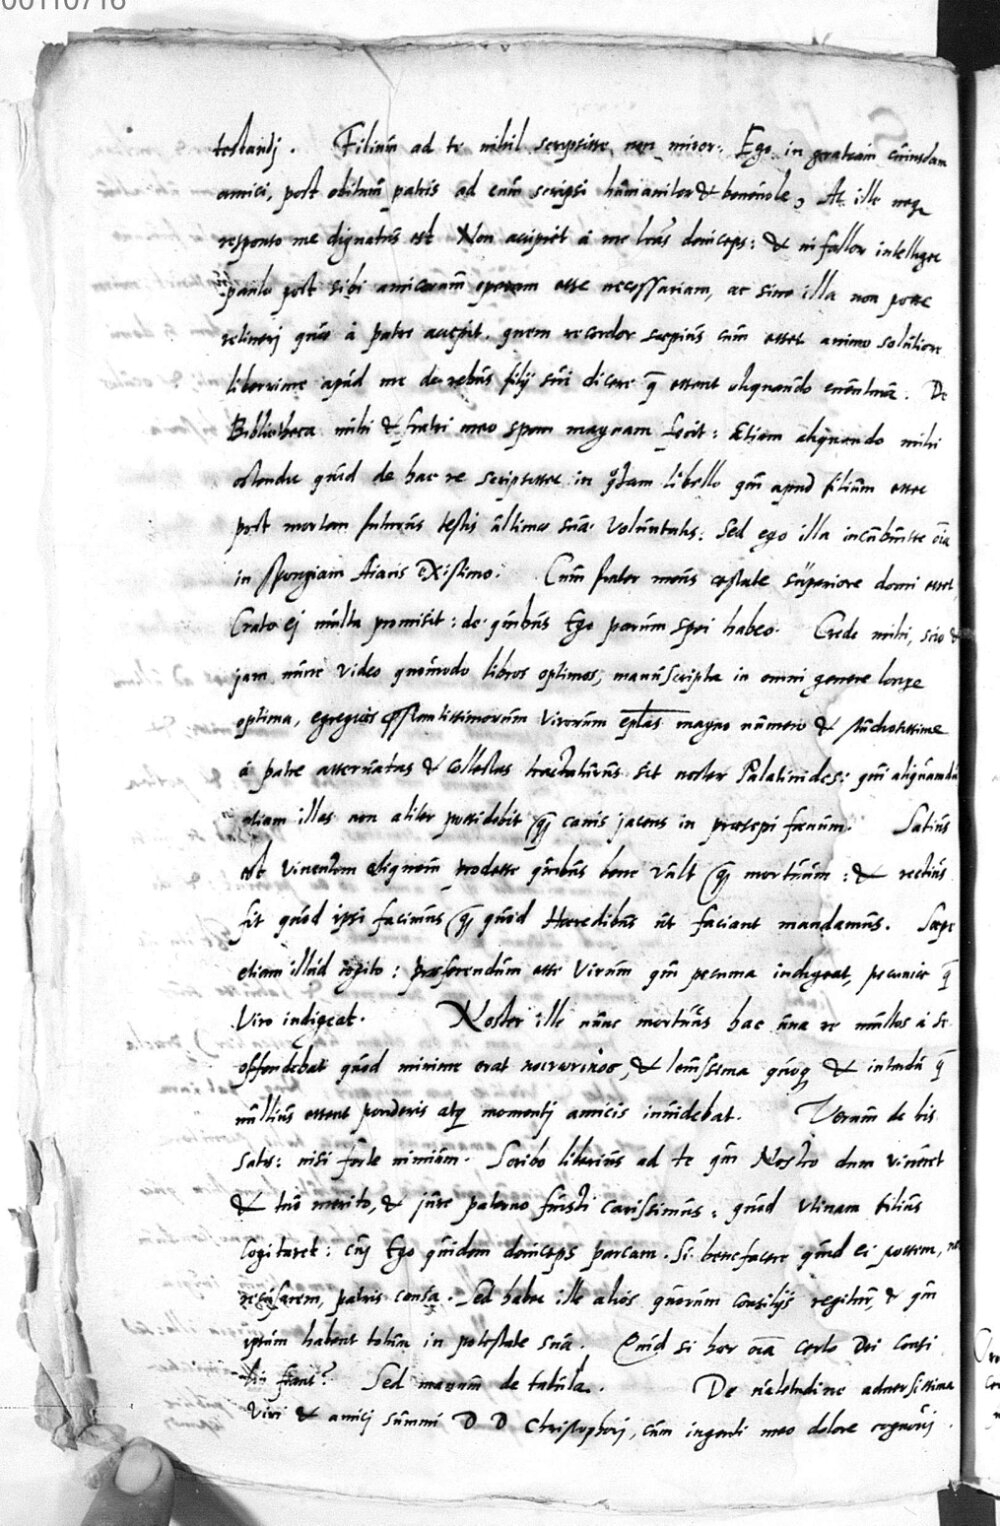 00110716
testandj. Filium ad te nihil scripsisse non miror. Ego in gratiam cuiusdam
amici, post obitum patris ad eum scripsi humaniter & beneuole, At ille neq
responso me dignatus est. Non accipiet à me lras deinceps: & ni fallor intelliget
paulo post sibi amicorum operam esse necessariam, ac sine illa non posse
retinerj quae à patre accepit. quem recordor saepius cum esset animo solutiore
liberrime apud me de rebus filij sui dicere q essent aliquando euentura. De
Bibliotheca mihi & fratri meo spem magnam fecit: Etiam aliquando mihi
ostendit quid de hac re scripsisset in qdam libello qui apud filium esse
post mortem futurus testis ultimae suae voluntatis: Sed ego illa incubuisse oia
in spongiam Aiacis existimo. Cum frater meus aestate superiore domi esset
Crato ej multa promisit: de quibus Ego parum spei habeo. Crede mihi, scio &
jam nunc video quomodo libros optimos, manuscripta in omni genere longe
optima, egregias pstantissimorum virorum eplas magno numero & studiosissime
à patre asseruatas & collectas tractaturus sit noster Palatinides: qui aliquamdiu
etiam illas non aliter possidebit q canis jacens in praesepi foenum. Satius
est viuentem aliquem prodesse quibus bene vult q mortuum: & rectius
fit quod ipsi facimus q quod Haeredibus ut faciant mandamus. Saepe
etiam illud cogito: praeferendum esse virum qui pecunia indigeat, pecuniae q
viro indigeat. Noster ille nunc mortuus hac una re multos à se
offendebat quod minime erat κοινωνικος, & leuissima quoq & interdu q
nullius essent ponderis atq momentj amicis inuidebat. Verum de his
satis: nisi forte nimium. Scribo liberius ad te qui Nostro dum viueret
& tuo merito, & jure paterno fuisti carissimus: quod vtinam filius
cogitaret: cuj Ego quidem deinceps parcam. Si benefacere quid ei possem, no
recusarem, patris causa. Sed habet ille alios quorum consilijs regitur, & qui
ipsum habent totum in potestate sua. Quid si haec oia certo Dei consi
lio fiant? Sed manum de tabula. De valetudine aduersissima
viri & amicj summi D D Christophorj, cum ingenti meo dolore cognouj